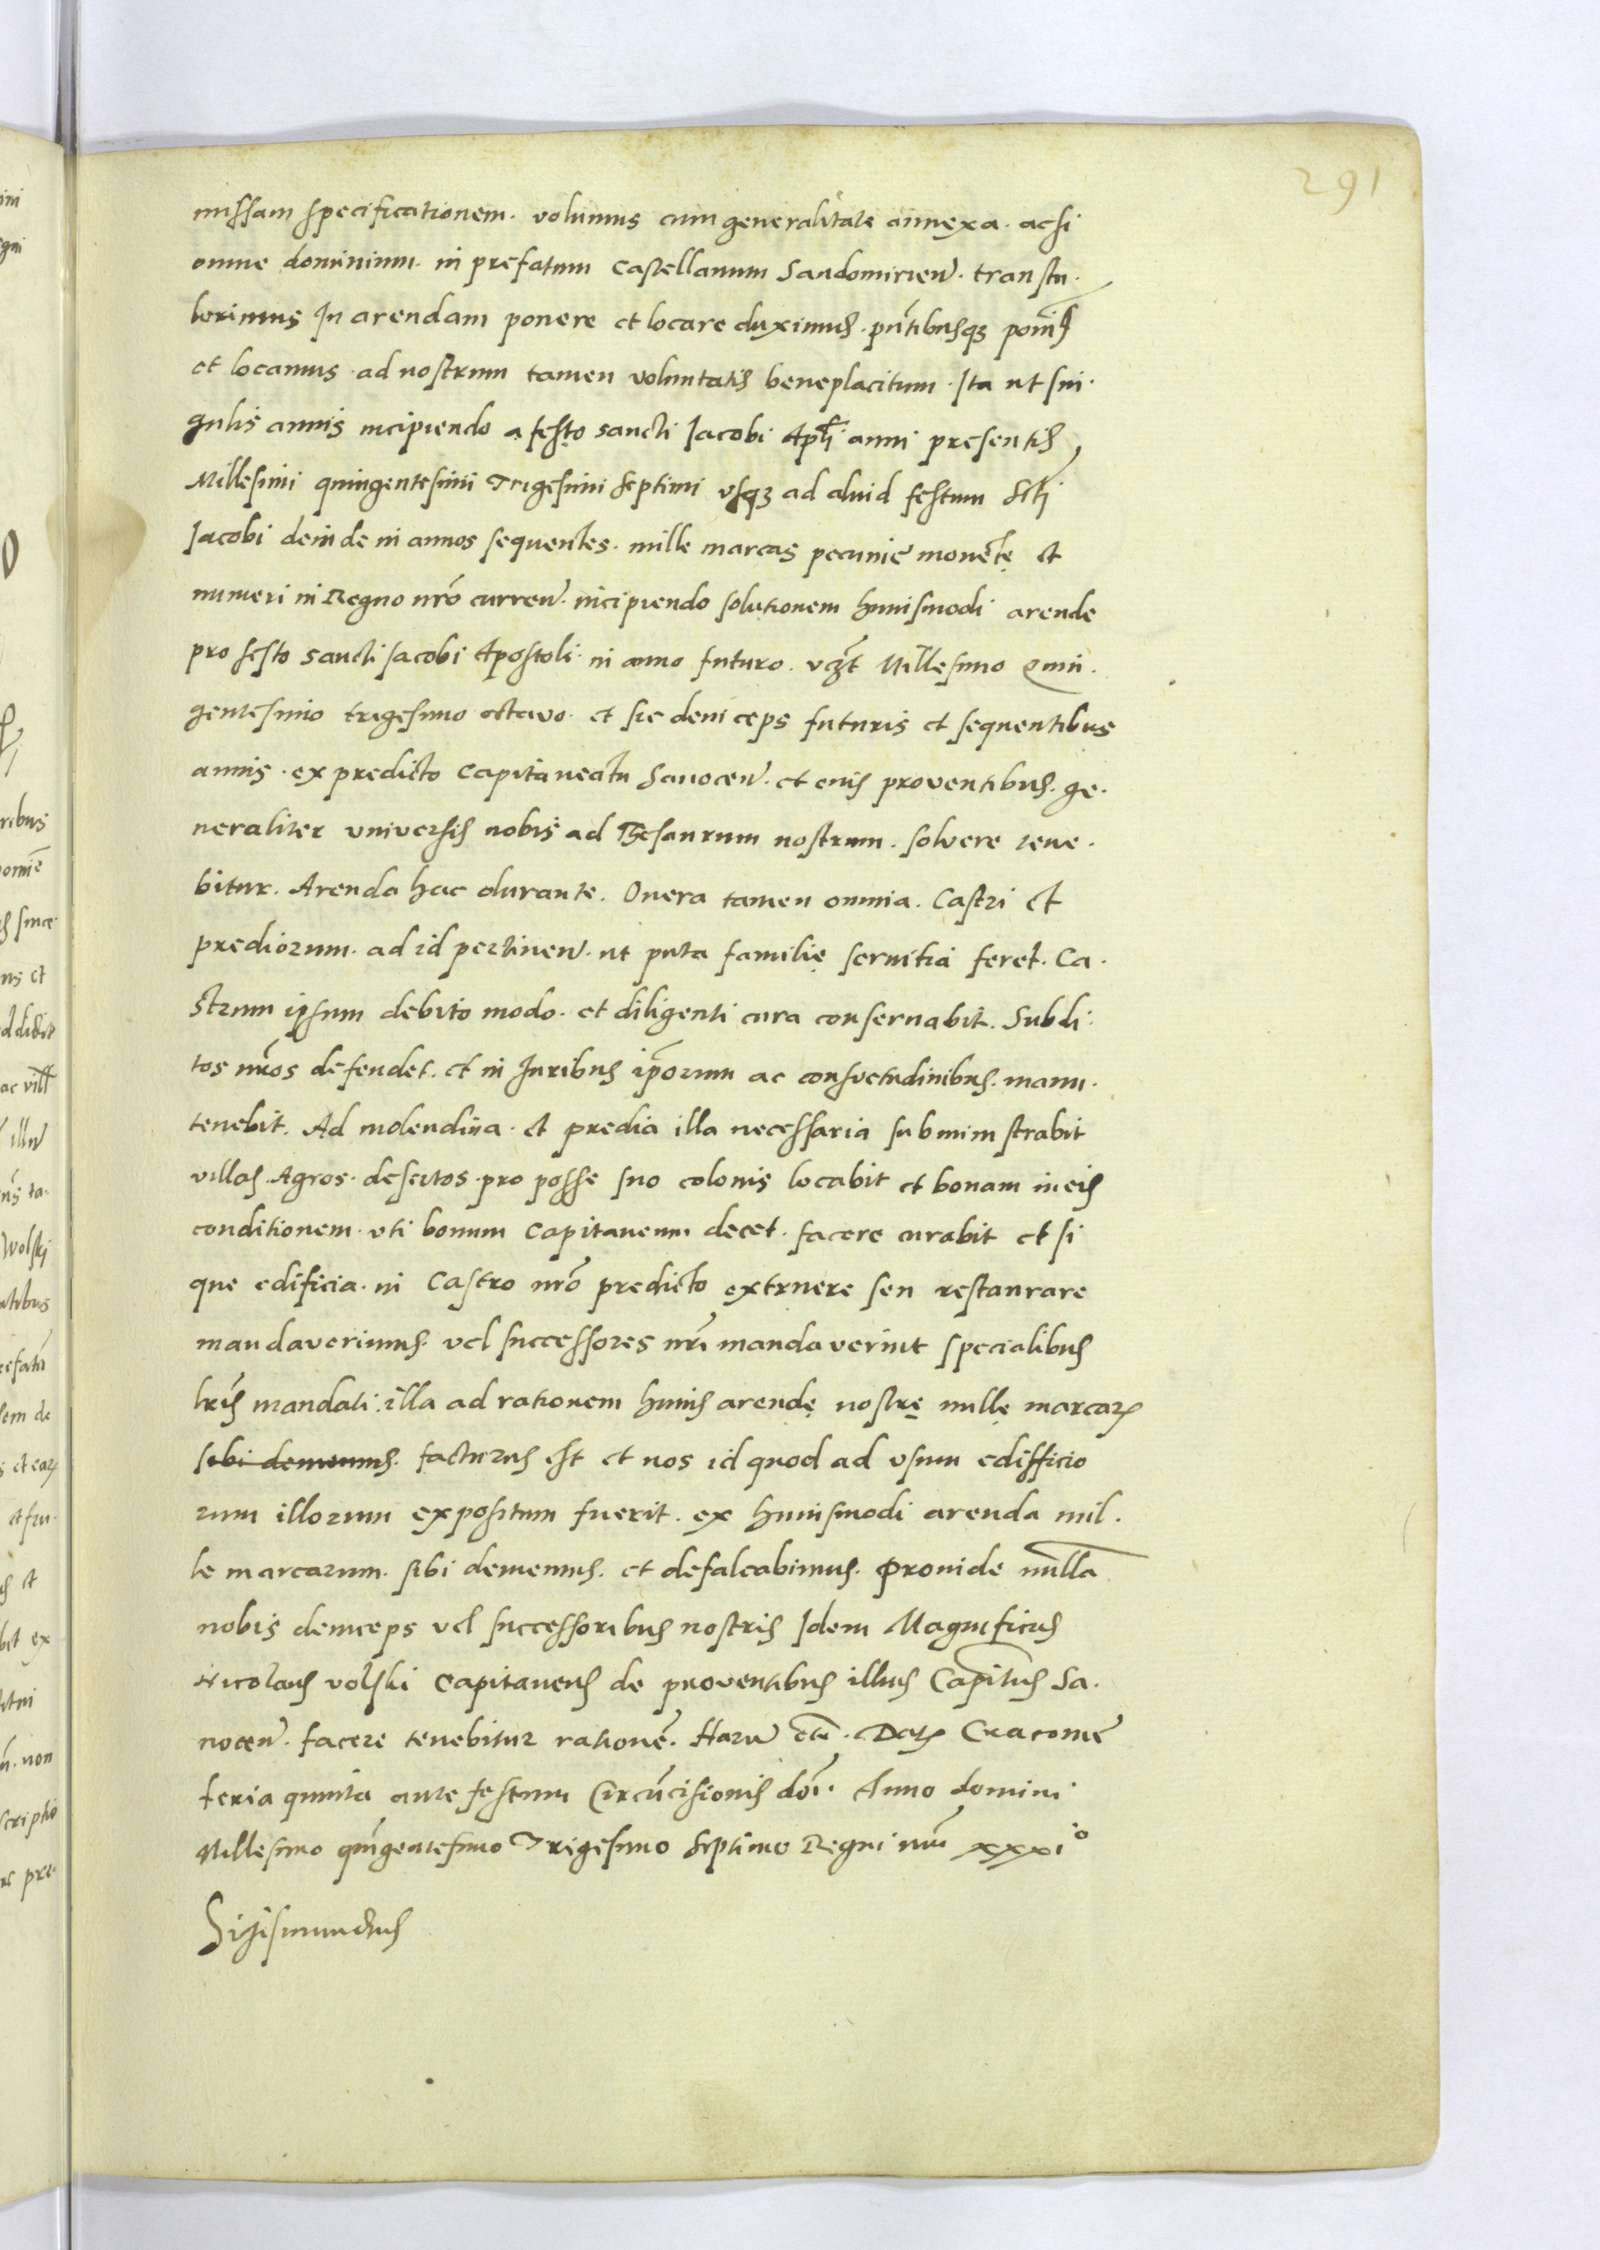 291
missam specificationem. volumus cum generalitate annexa. acsi
omne dominium. in prefatum Castellanum Sandomirien. transtu.
lerimus In arendam ponere et locare duximus. pñtibusq3 ponim9
et locamus. ad nostrum tamen voluntatis beneplacitum. Ita ut sin.
gulis annis incipiendo a festo sancti Jacobi Apli anni presentis
Millesimi quingentesimi Trigesimi septimi vsq3 ad aliud festum Scti
Jacobi deinde in annos sequentes. mille marcas pecunie monetę et
numeri in Regno nrõ curren. incipiendo solutionem huiusmodi arende
pro festo sancti Jacobi Apostoli. in anno futuro. vz3t Millesimo Quin.
gentesimo trigesimo octavo. et sic deinceps futuris et sequentibus
annis. ex predicto Capitaneatu Sanocen. et euis proventibus. ge.
neraliter universis nobis ad Thesaurum nostrum. solvere tene.
bitur. Arenda hac durante. Onera tamen omnia. Castri et
prediorum. ad id pertinen. ut puta familię servitia feret. Ca.
strum ipsum debito modo. et diligenti cura conservabit. Subdi.
tos nros defendet. et in Juribus ipõrum ac consvetudinibus. manu.
tenebit. Ad molendina. et predia illa necessaria subministrabit
villas. Agros. desertos. pro posse suo colonis locabit et bonam in eis
conditionem. uti bonum Capitaneum decet. facere curabit et si
que edificia. in Castro nrõ predicto extruere seu restaurare
mandaverimus. vel successores nri mandaverint specialibus
lris mandati. illa ad rationem huius arendę nostrę millę marcar
sibi dememus. facturus est et nos id quod ad vsum edifficio
rum illorum expositum fuerit. ex huiusmodi arenda mil.
le marcarum. sibi dememus. et defalcabimus. Proinde nullã
nobis deinceps vel successoribus nostris Idem Magnificus
Nicolaus volski Capitaneus de proventibus illius Capitus Sa.
nocen. facere tenebitur rationẽ. Haru etc. Dat Cracovie
feria quinta ante festum Circũcisionis dõi. Anno domini
Millesimo quĩgentesimo Trigesimo septimo Regni nri xxxio
Sigismundus